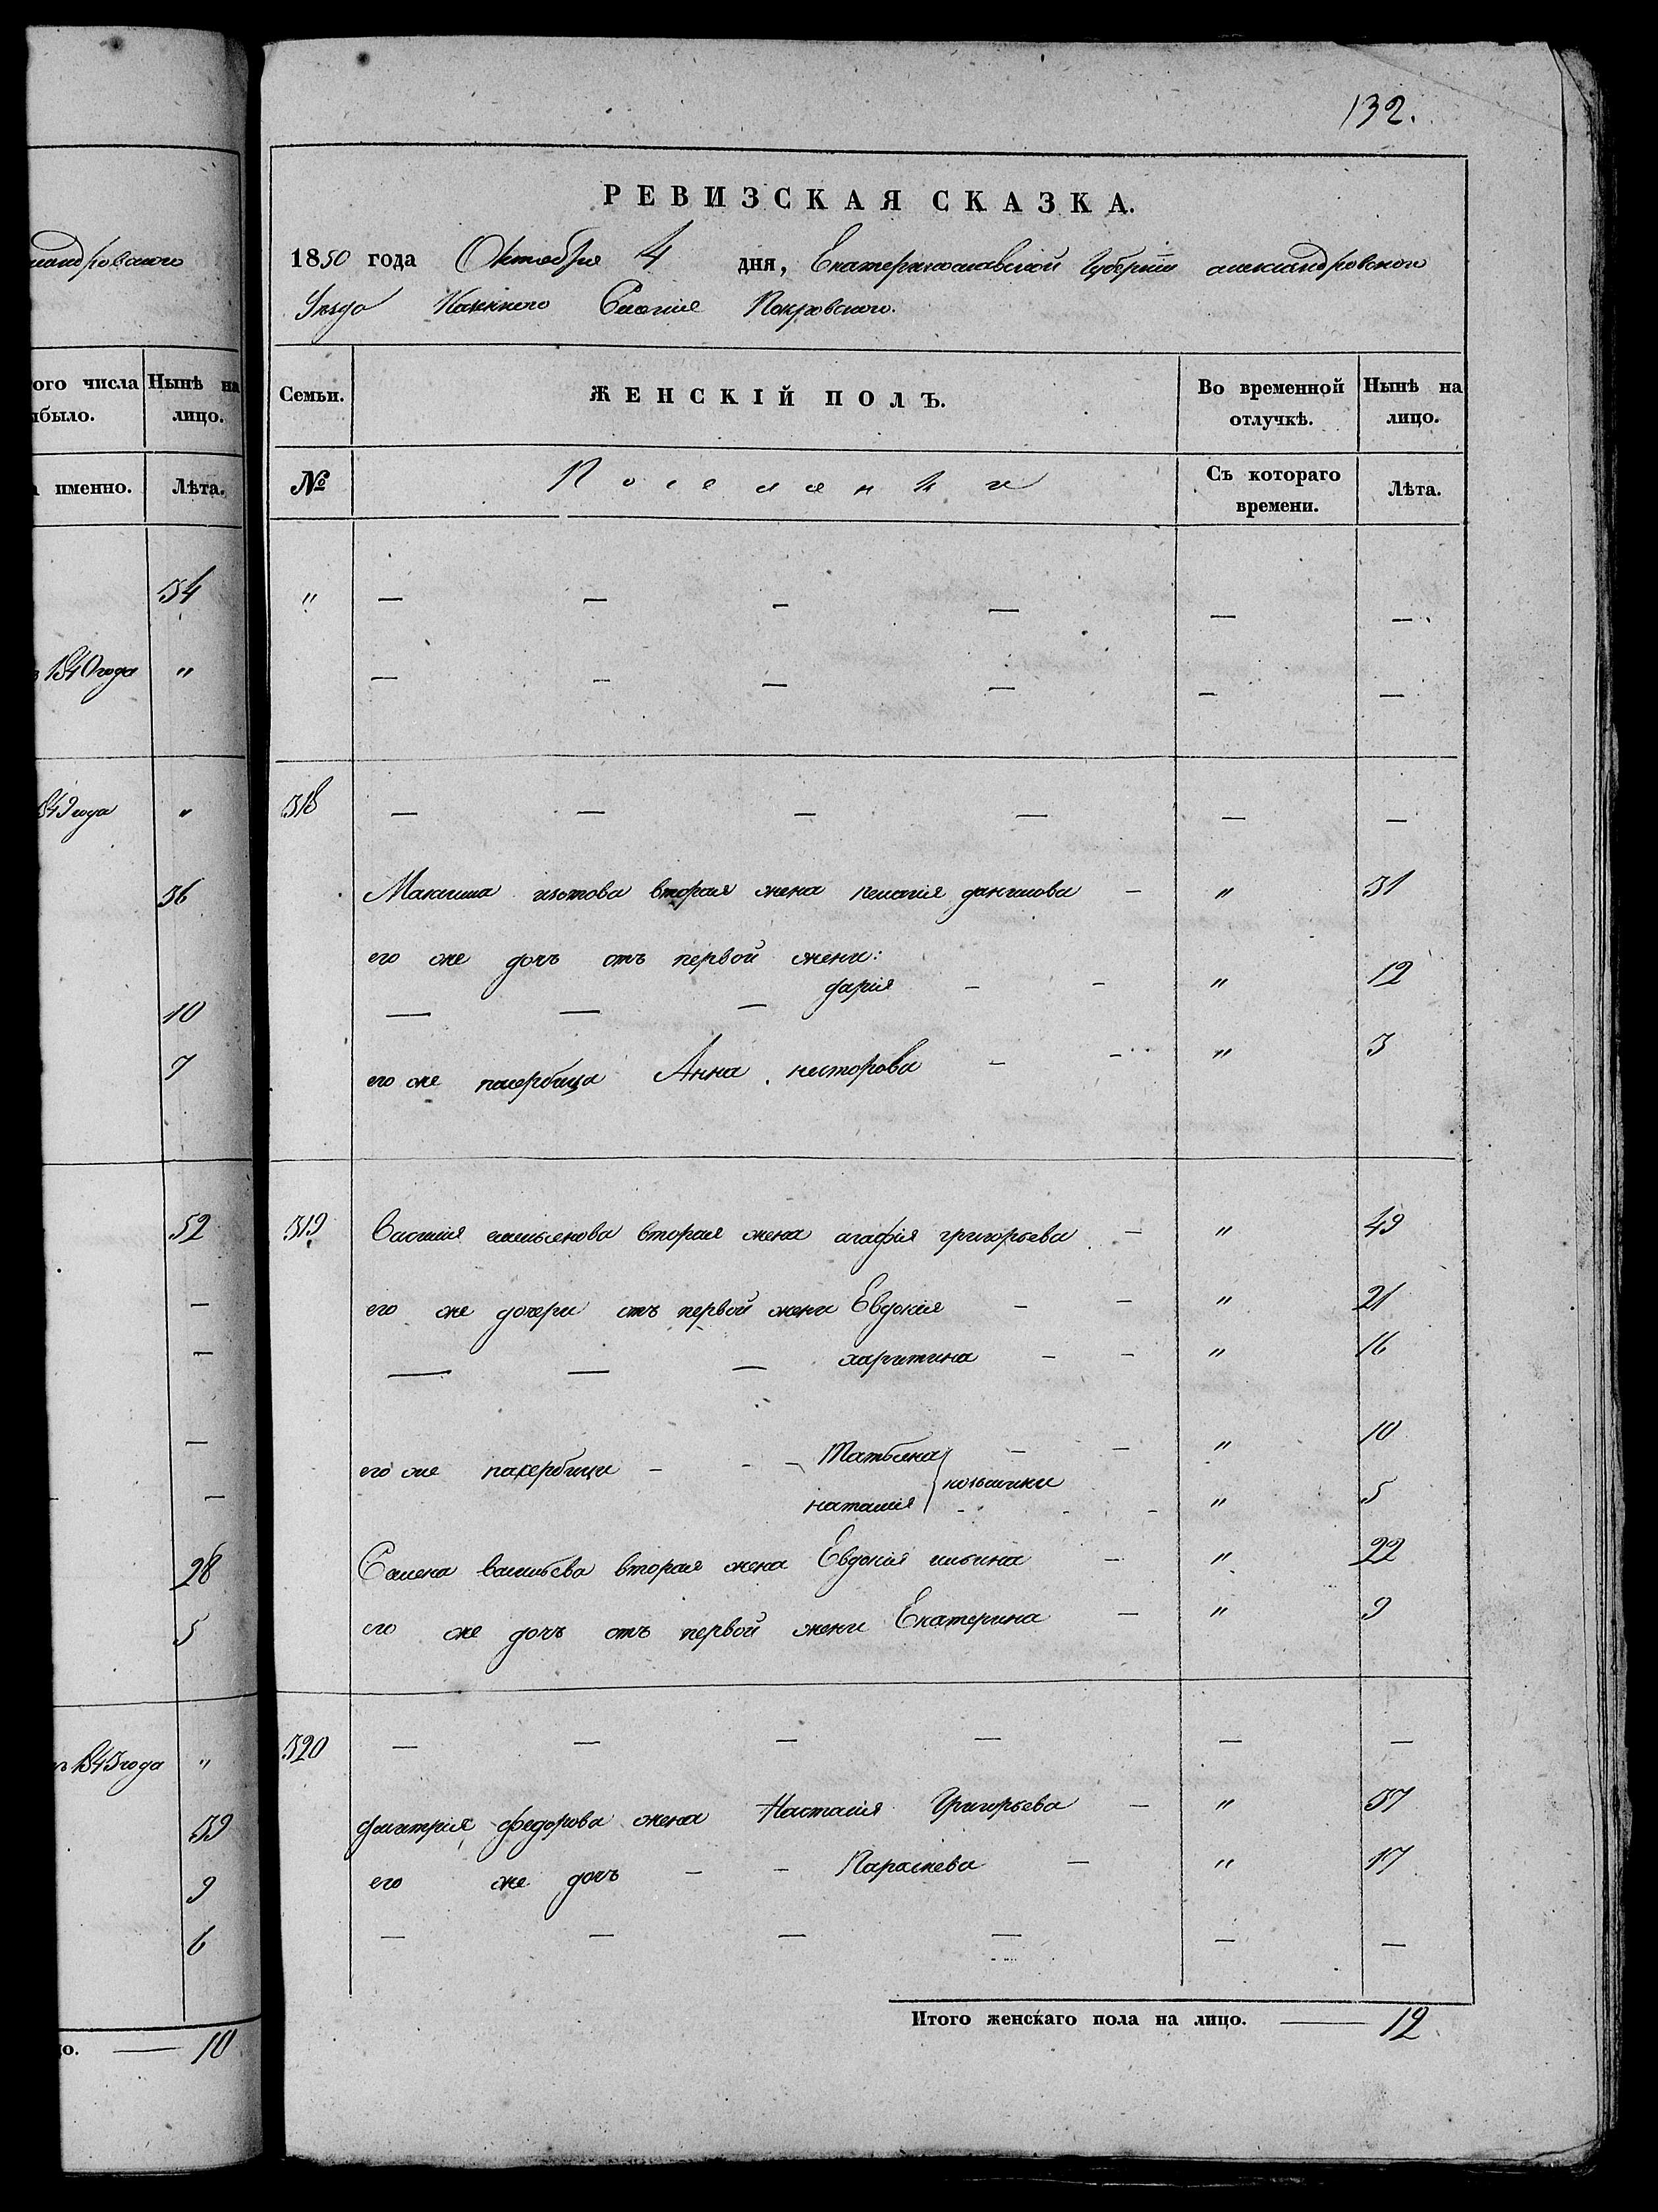 132.
РЕВИЗСКАЯ СКАЗКА.
1850 года Октября 4 дня, Екатеринославской Губернии александровского
Уезда Казенного Селения Покровского.
Семьи. ЖЕНСКІЙ ПОЛЪ. Во временной отлучкѣ. Нынѣ на лицо.
№ Поселянки Съ котораго времени. Лѣта.
" — — — — — —
— — — — — —
318 — — — — — —
Максима изотова вторая жена пелагия данилова — " 31
его же дочь отъ первой жени:
— — — дария — — " 12
его же падербица Анна несторова — — " 3
319 Василия емельенова вторая жена агафія григорьева — " 49
его же дочери отъ первой жени Евдокия — — " 21
— — — харитина — — " 16
его же падербици — — — Татьяна — — " 10
наталия — — — " 5
Семена васильева вторая жена Евдокия ильина — " 22
его же дочь отъ первой жени Екатерина — " 9
320 — — — — — —
дмитрия федорова жена Наталия Григорьева — " 37
его же дочь — — Параскева — " 17
— — — — — —
Итого женскаго пола на лицо. — 12
андровского
ого числа Нынѣ на
ыбыло. лицо.
именно. Лѣта.
34
1840 года "
849 года "
36
10
7
52
—
—
—
—
28
5
1843 года "
39
9
6
о. — 10